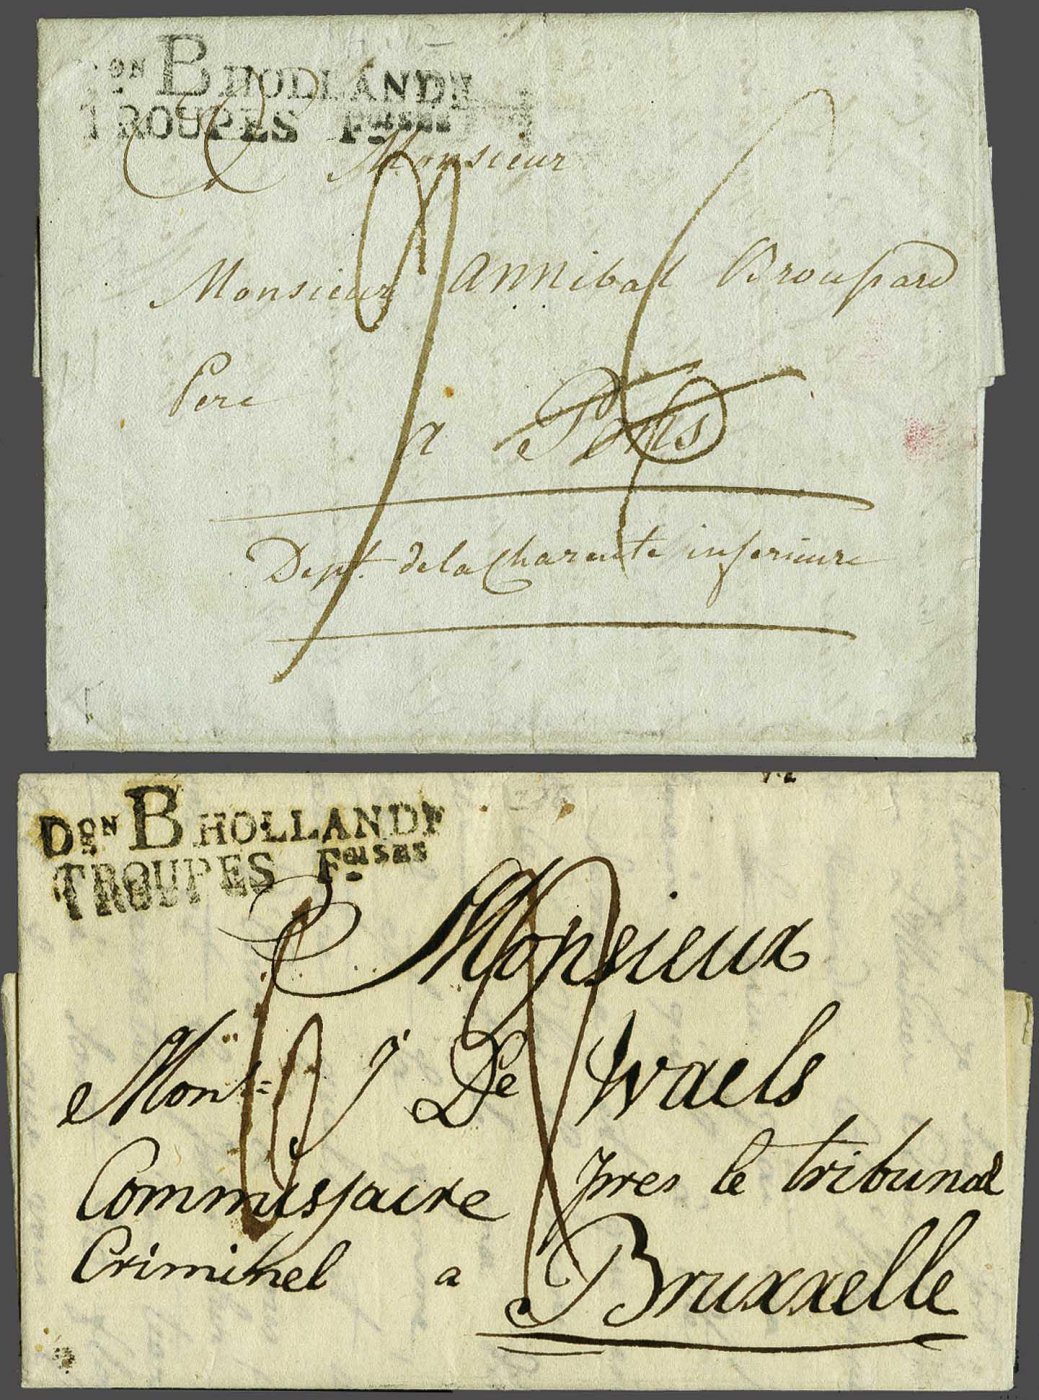 ON B HOLLANDE
TROUPES Fçaises
Monsieur
Monsieur Annibal Broussard
Pere
a Pons
Dept. de la Charente inferieure
DON B HOLLANDE
TROUPES FÇAISES
Monsieur
Mons= J De Waels
Commissaire pres le tribunal
Criminel a Bruxxelle